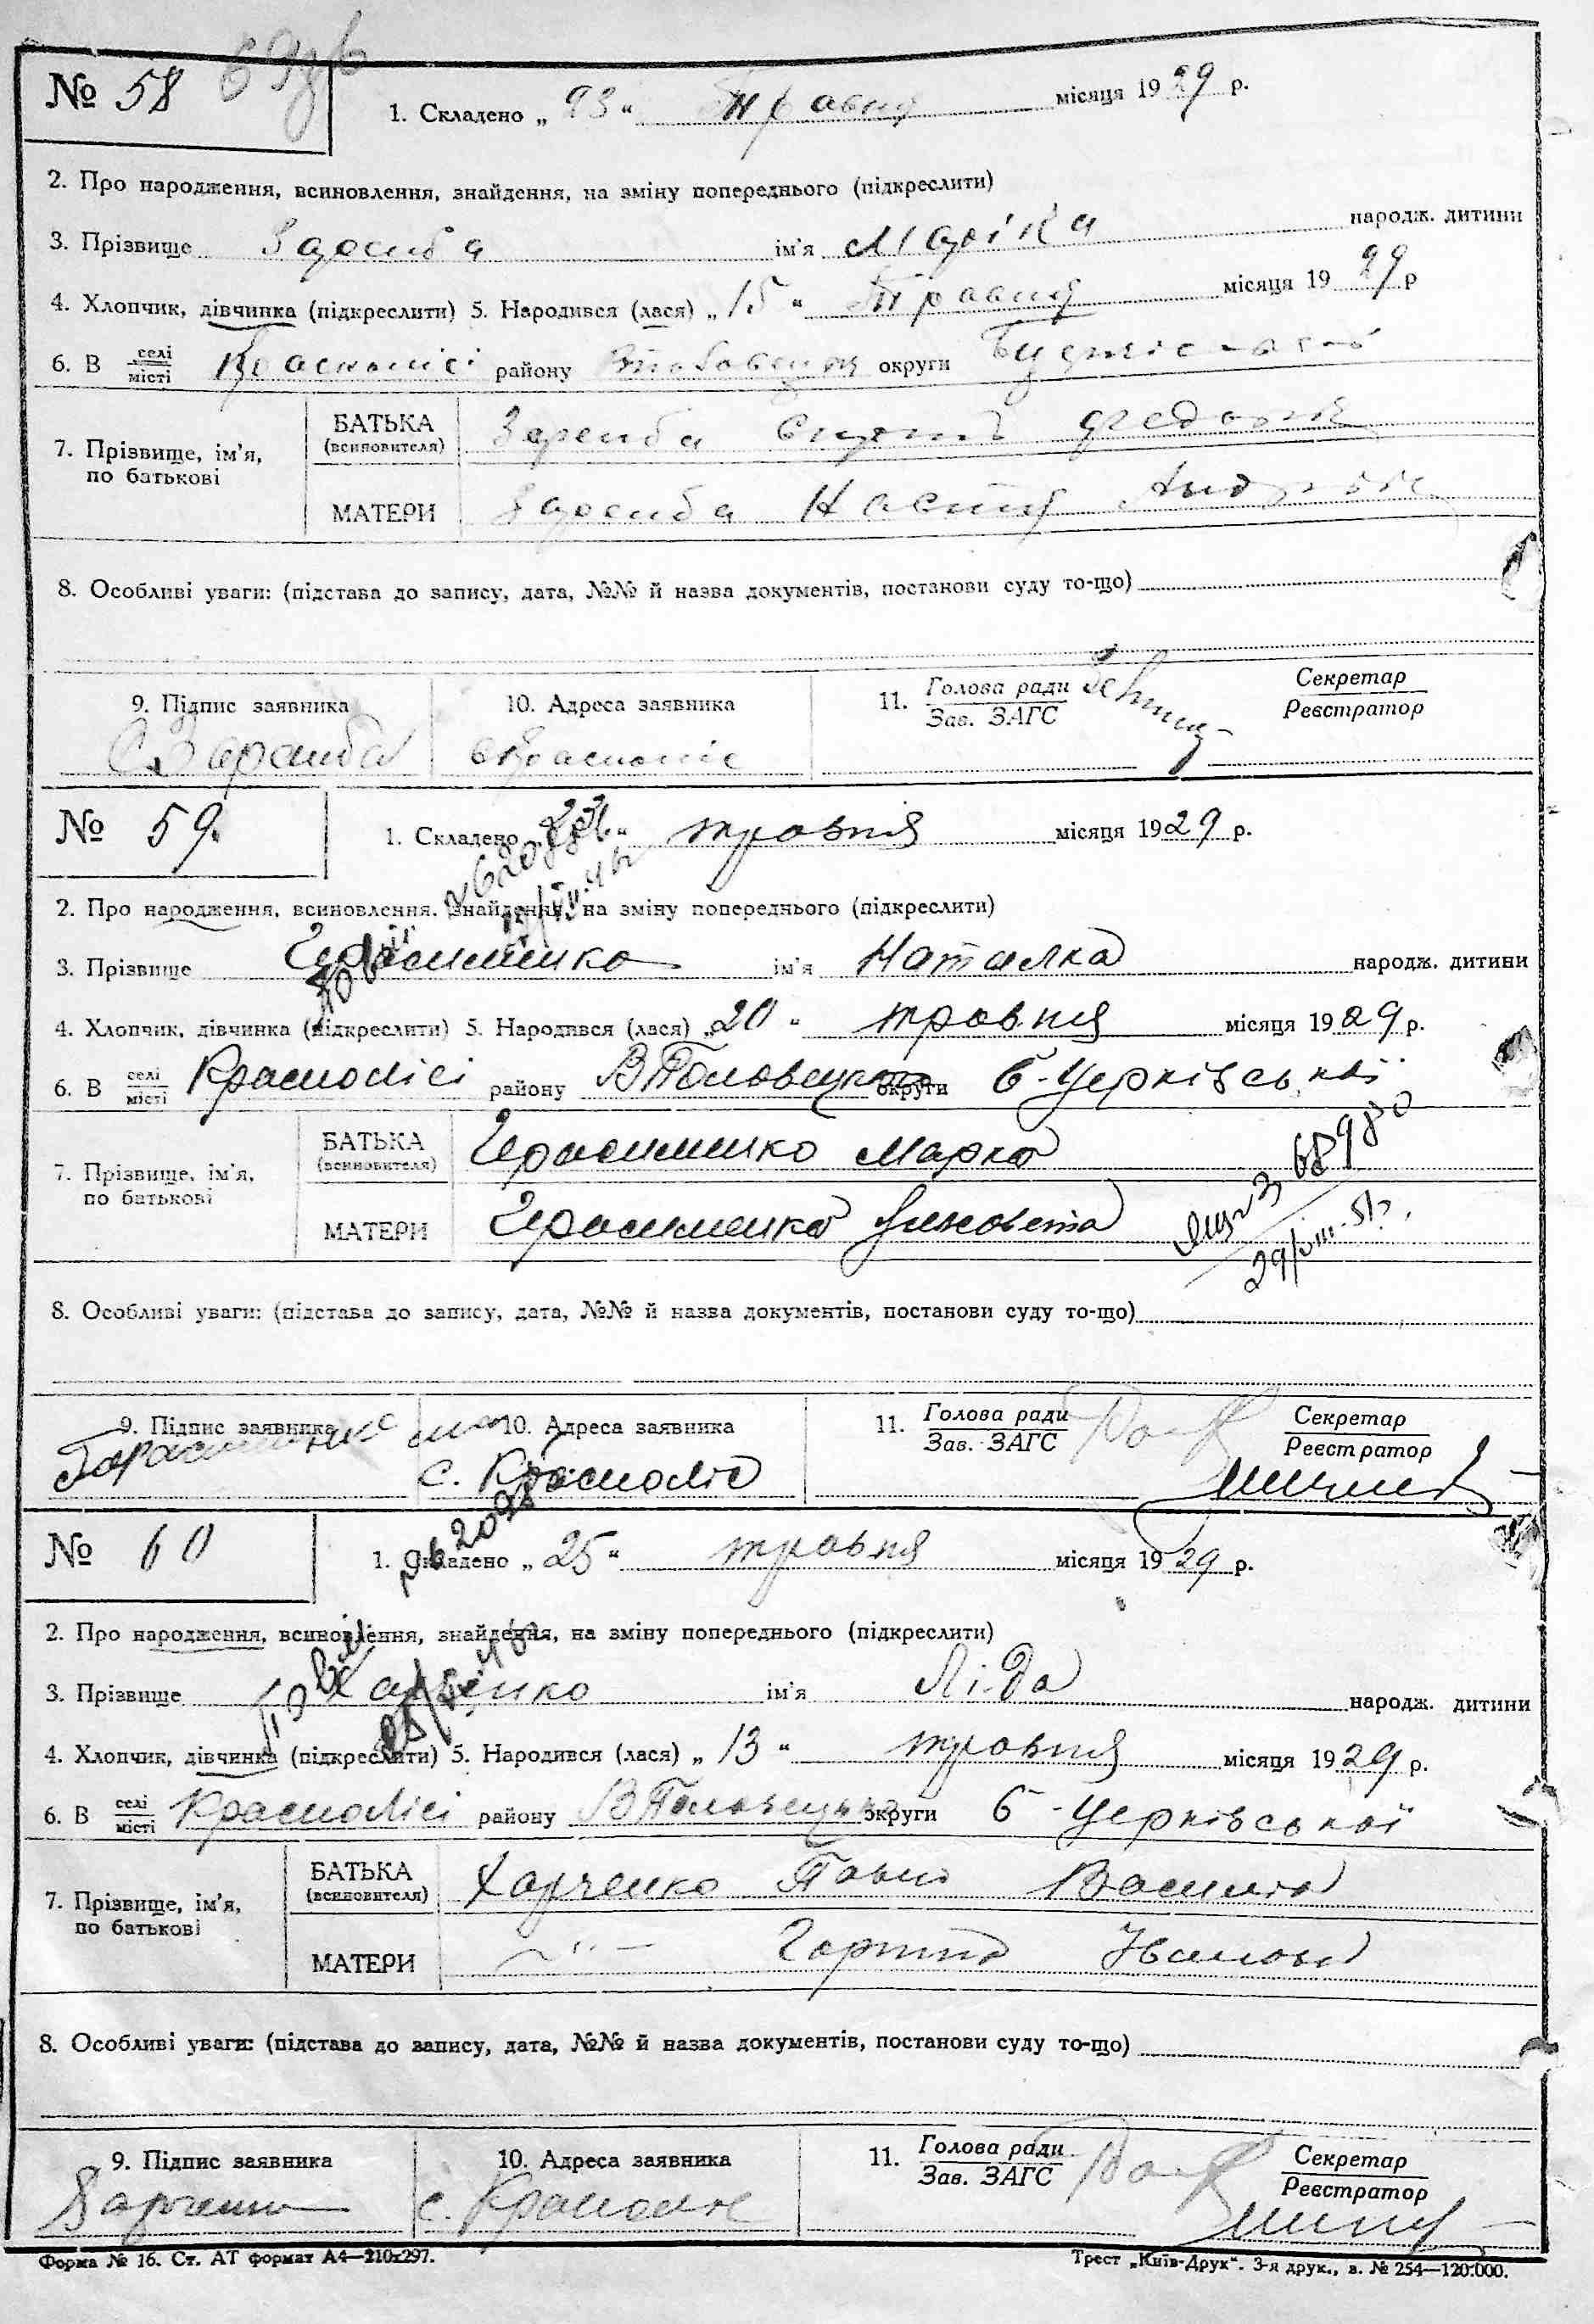 № 58
1. Складено „ 23 “ Травня місяця 1929 р.
2. Про народження, всиновлення, знайдення, на зміну попереднього (підкреслити)
3. Прізвище Заремба ім'я Марійка народж. дитини
4. Хлопчик, дівчинка (підкреслити) 5. Народився (лася) „ 15 “ Травня місяця 1929 р
6. В селі/місті Краснолісі району округи
7. Прізвище, ім'я, по батькові
БАТЬКА (всиновителя) Заремба
МАТЕРИ Заремба Настя
8. Особливі уваги: (підстава до запису, дата, №№ й назва документів, постанови суду то-що)
9. Підпис заявника
10. Адреса заявника
11. Голова ради / Зав. ЗАГС
Секретар / Реєстратор
Заремба
с Красноліс
№ 59.
1. Складено „ 23 “ травня місяця 1929 р.
2. Про народження, всиновлення, знайдення, на зміну попереднього (підкреслити)
3. Прізвище Герасименко ім'я Наталка народж. дитини
4. Хлопчик, дівчинка (підкреслити) 5. Народився (лася) „ 20 “ травня місяця 1929 р.
6. В селі/місті Краснолісі району В Половецького округи Б-Церківської
7. Прізвище, ім'я, по батькові
БАТЬКА (всиновителя) Герасименко Марко
МАТЕРИ Герасименко
68980
29/VIII-51р.
8. Особливі уваги: (підстава до запису, дата, №№ й назва документів, постанови суду то-що)
9. Підпис заявника
10. Адреса заявника
11. Голова ради / Зав. ЗАГС
Секретар / Реєстратор
с. Красноліс
№ 60
1. Складено „ 25 “ травня місяця 1929 р.
2. Про народження, всиновлення, знайдення, на зміну попереднього (підкреслити)
3. Прізвище Харченко ім'я Ліда народж. дитини
4. Хлопчик, дівчинка (підкреслити) 5. Народився (лася) „ 13 “ травня місяця 1929 р.
6. В селі/місті Краснолісі району В Половецького округи Б-Церківської
7. Прізвище, ім'я, по батькові
БАТЬКА (всиновителя) Харченко Павло
МАТЕРИ — " —
8. Особливі уваги: (підстава до запису, дата, №№ й назва документів, постанови суду то-що)
9. Підпис заявника
10. Адреса заявника
11. Голова ради / Зав. ЗАГС
Секретар / Реєстратор
с. Красноліс
Форма № 16. Ст. АТ формат А4—210х297.
Трест „Київ-Друк“. 3-я друк., з. № 254—120.000.